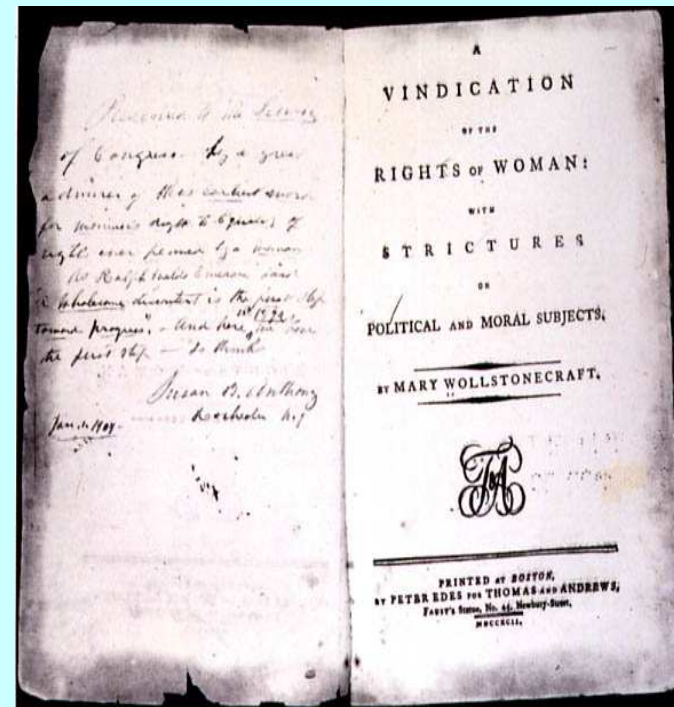 Presented to the Library
of Congress by a great
admirer of this earliest work
for woman's right to Equality of
right ever penned by a woman
As Ralph Waldo Emerson said
"A wholesome discontent is the first step
toward progress". - And here, in 1792, we have
the first step - So thinks
Susan B. Anthony
Rochester N.Y
Jan. 1904
A
VINDICATION
OF THE
RIGHTS OF WOMAN:
WITH
STRICTURES
ON
POLITICAL AND MORAL SUBJECTS.
BY MARY WOLLSTONECRAFT.
T&A
PRINTED AT BOSTON,
BY PETER EDES FOR THOMAS AND ANDREWS,
FAUST'S Statue, No. 45, Newbury-Street,
MDCCXCII.